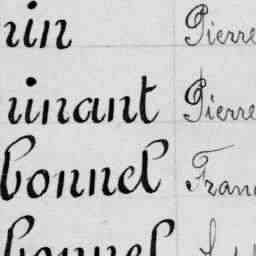 uin Pierre
uinant Pierre
bonnel Fran
bonnel